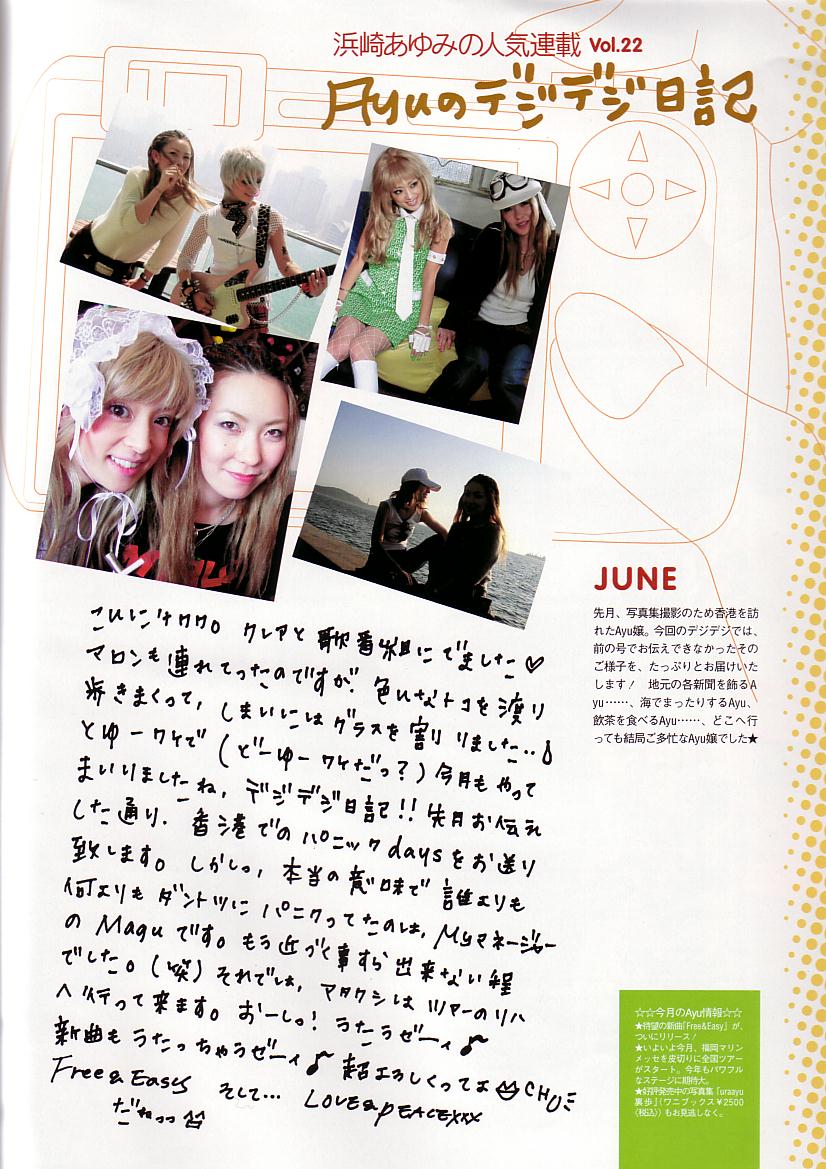 浜崎あゆみの人気連載 Vol.22
Ayuのデジデジ日記
JUNE
先月、写真集撮影のため香港を訪
れたAyu嬢。今回のデジデジでは、
前の号でお伝えできなかったその
ご様子を、たっぷりとお届けいた
します！　地元の各新聞を飾るA
yu……、海でまったりするAyu、
飲茶を食べるAyu……、どこへ行
っても結局ご多忙なAyu嬢でした★
クレアと歌番組にでました♡
マロンも連れてったのですが、色いなトコを渡り
歩きまくって、しまいにはグラスを割りりました…♪
とゆーワケで(どーゆーワケだっ?)今月もやって
まいりましたね，デジデジ日記!! 先月お伝え
した通り，香港でのパニックdaysをお送り
致します。しかしっ，本当の意味で誰よりも
何よりもダントツにパニクってたのは，Myマネージャー
のMaguです。もう近づく事すら出来ない程
でした。(笑)それでは，アタクシはツアーのリハ
へ行って来ます。おーしっ! うたうゼーィ♪
新曲もうたっちゃうゼーィ♪ 超よろしくってよ CHU
Free&Easy そして… LOVE&PEACExxx
だねっっ
☆☆今月のAyu情報☆☆
★待望の新曲「Free&Easy」が、
ついにリリース！
★いよいよ今月、福岡マリン
メッセを皮切りに全国ツアー
がスタート。今年もパワフル
なステージに期待大。
★好評発売中の写真集「uraayu
裏歩」(ワニブックス¥2500
〈税込〉)もお見逃しなく。